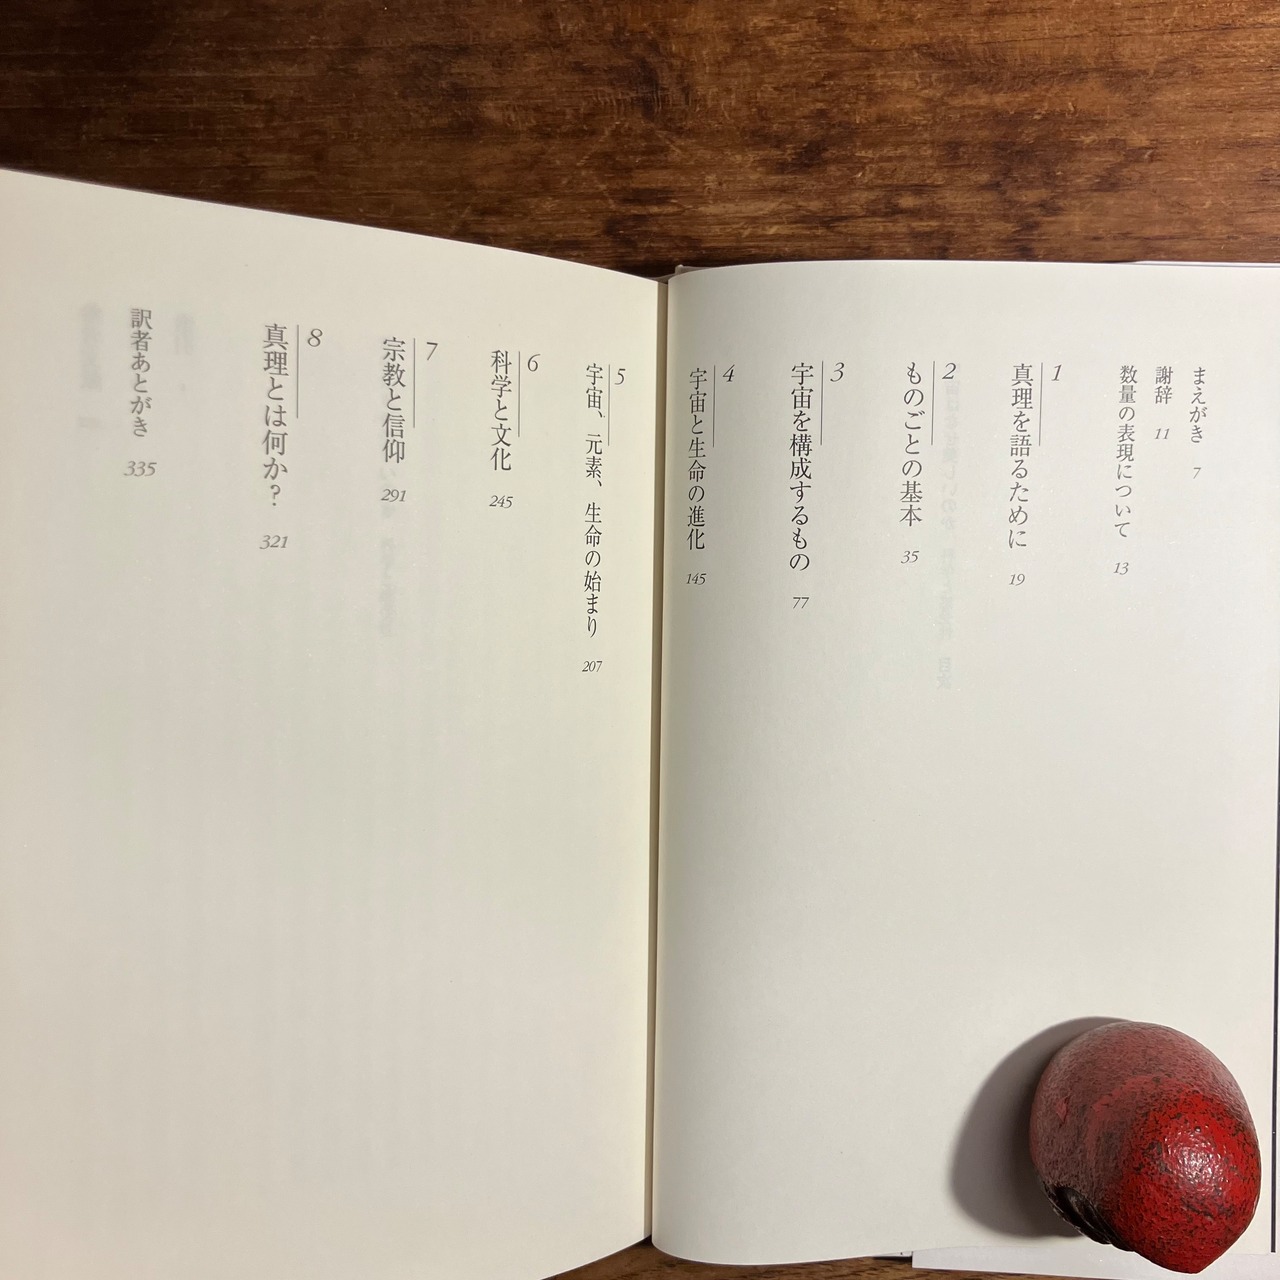 まえがき 7
謝辞 11
数量の表現について 13
1
真理を語るために 19
2
ものごとの基本 35
3
宇宙を構成するもの 77
4
宇宙と生命の進化 145
5
宇宙、元素、生命の始まり 207
6
科学と文化 245
7
宗教と信仰 291
8
真理とは何か? 321
訳者あとがき 335